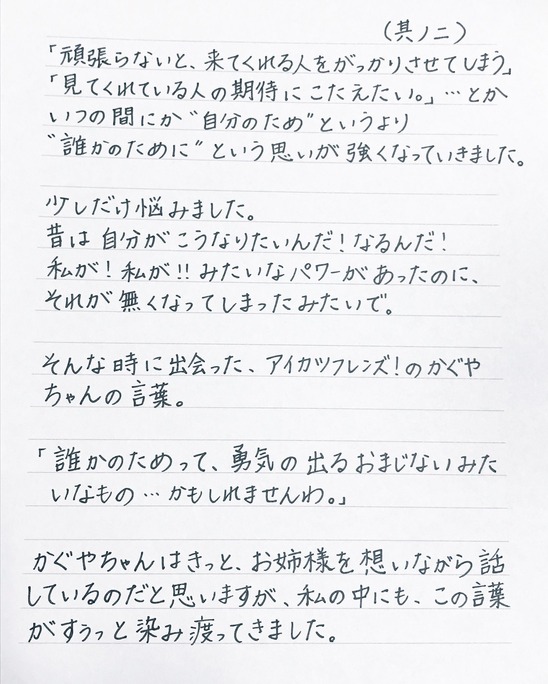 （其ノ二）
「頑張らないと、来てくれる人をがっかりさせてしまう」
「見てくれている人の期待にこたえたい。」…とか
いつの間にか"自分のため"というより
"誰かのために"という思いが強くなっていきました。
少しだけ悩みました。
昔は自分がこうなりたいんだ！なるんだ！
私が！私が！！みたいなパワーがあったのに、
それが無くなってしまったみたいで。
そんな時に出会った、アイカツフレンズ！のかぐや
ちゃんの言葉。
「誰かのためって、勇気の出るおまじないみた
いなもの…かもしれませんわ。」
かぐやちゃんはきっと、お姉様を想いながら話
しているのだと思いますが、私の中にも、この言葉
がすぅっと染み渡ってきました。